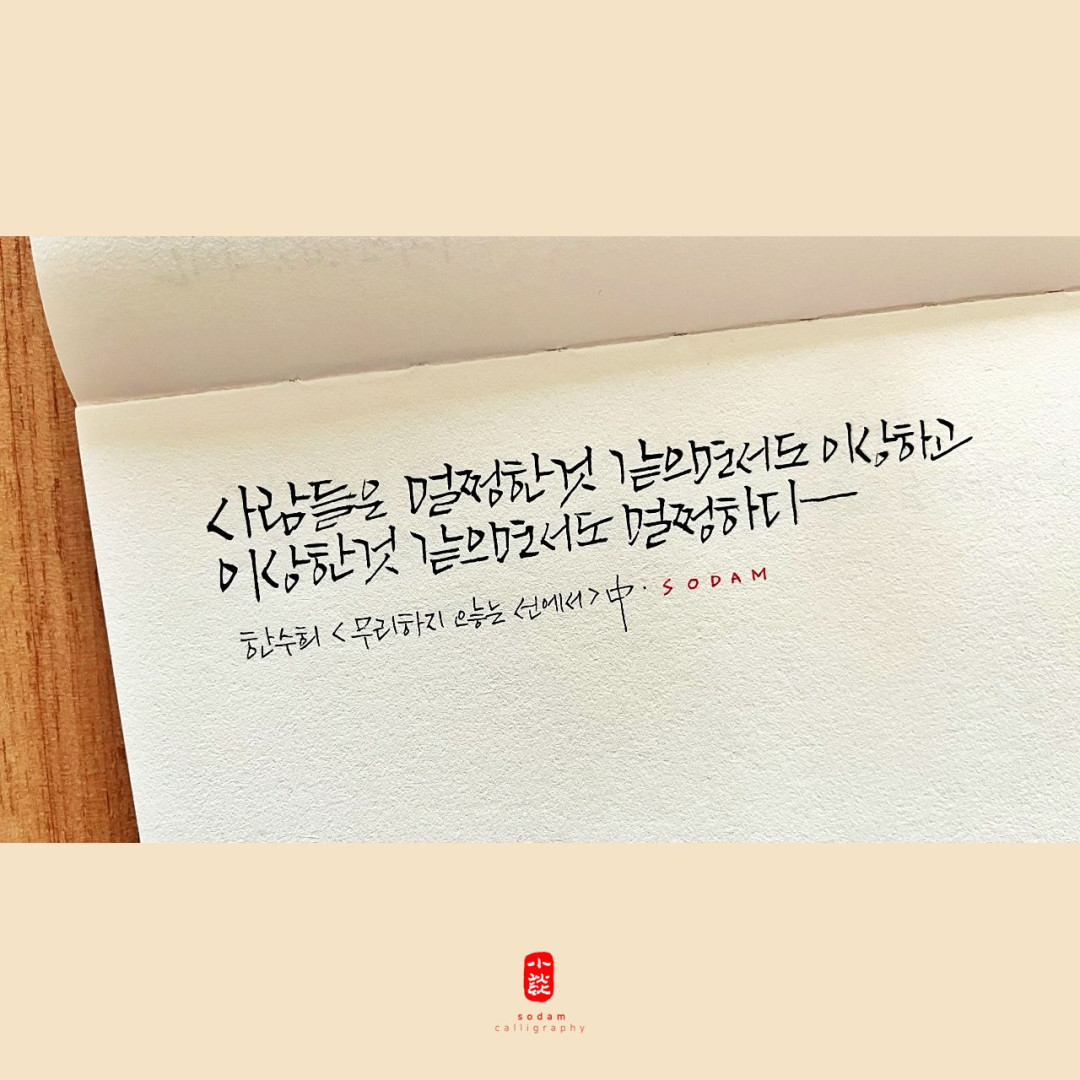 사람들은 멀쩡한것 같으면서도 이상하고
이상한것 같으면서도 멀쩡하다
한수희 <무리하지 않는 선에서> 中. SODAM
小談
sodam
calligraphy